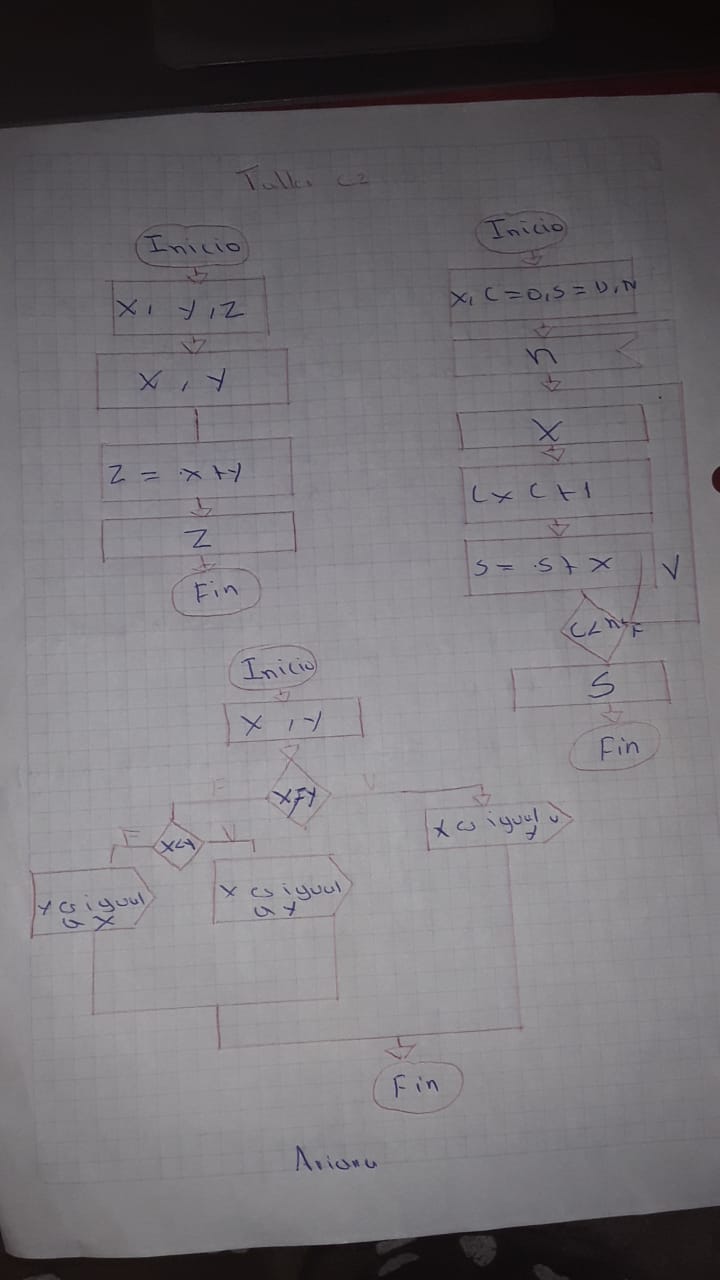 Inicio
X, Y, Z
X, Y
Z = X+Y
Z
Fin
Inicio
X, C=0, S=0, N
n
X
C+1
S= S+ X
V
C<n
F
S
Fin
Inicio
X, Y
F
V
F
X<Y
V
igual
X
X es igual
a Y
X es igual
Y
Fin